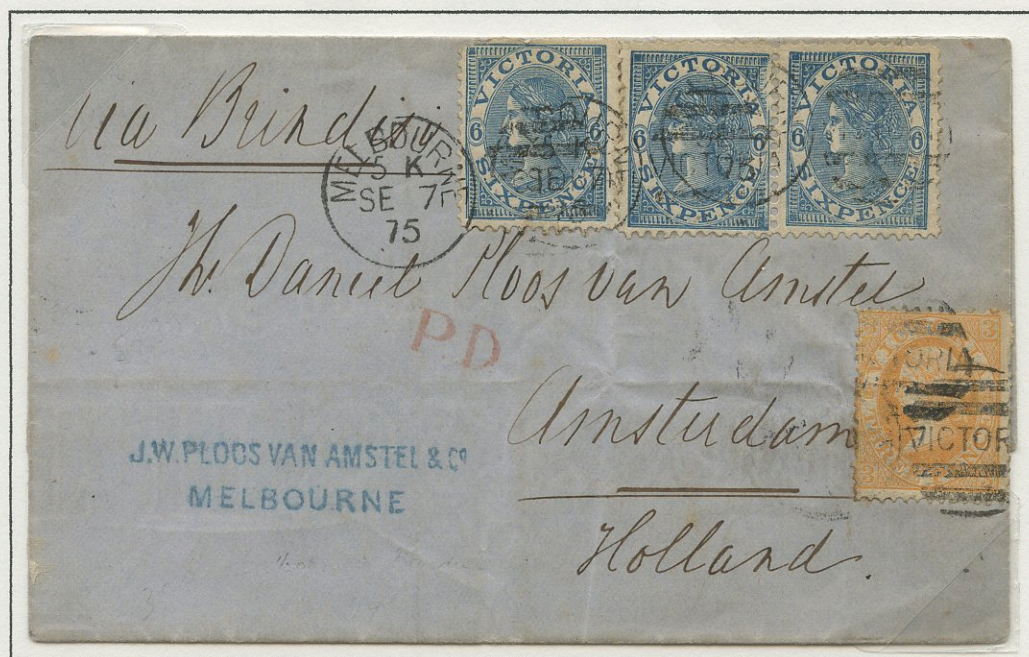 via Brindisi
MELBOURNE
5 K
SE 7
75
VICTORIA
6 6
SIXPENCE
VICTORIA
6 6
SIXPENCE
VICTORIA
6 6
SIXPENCE
Daniel Ploos van Amstel
PD
3 3
VICTORIA
VICTOR
3
Amsterdam
J.W. PLOOS VAN AMSTEL & Cº
MELBOURNE
Holland.